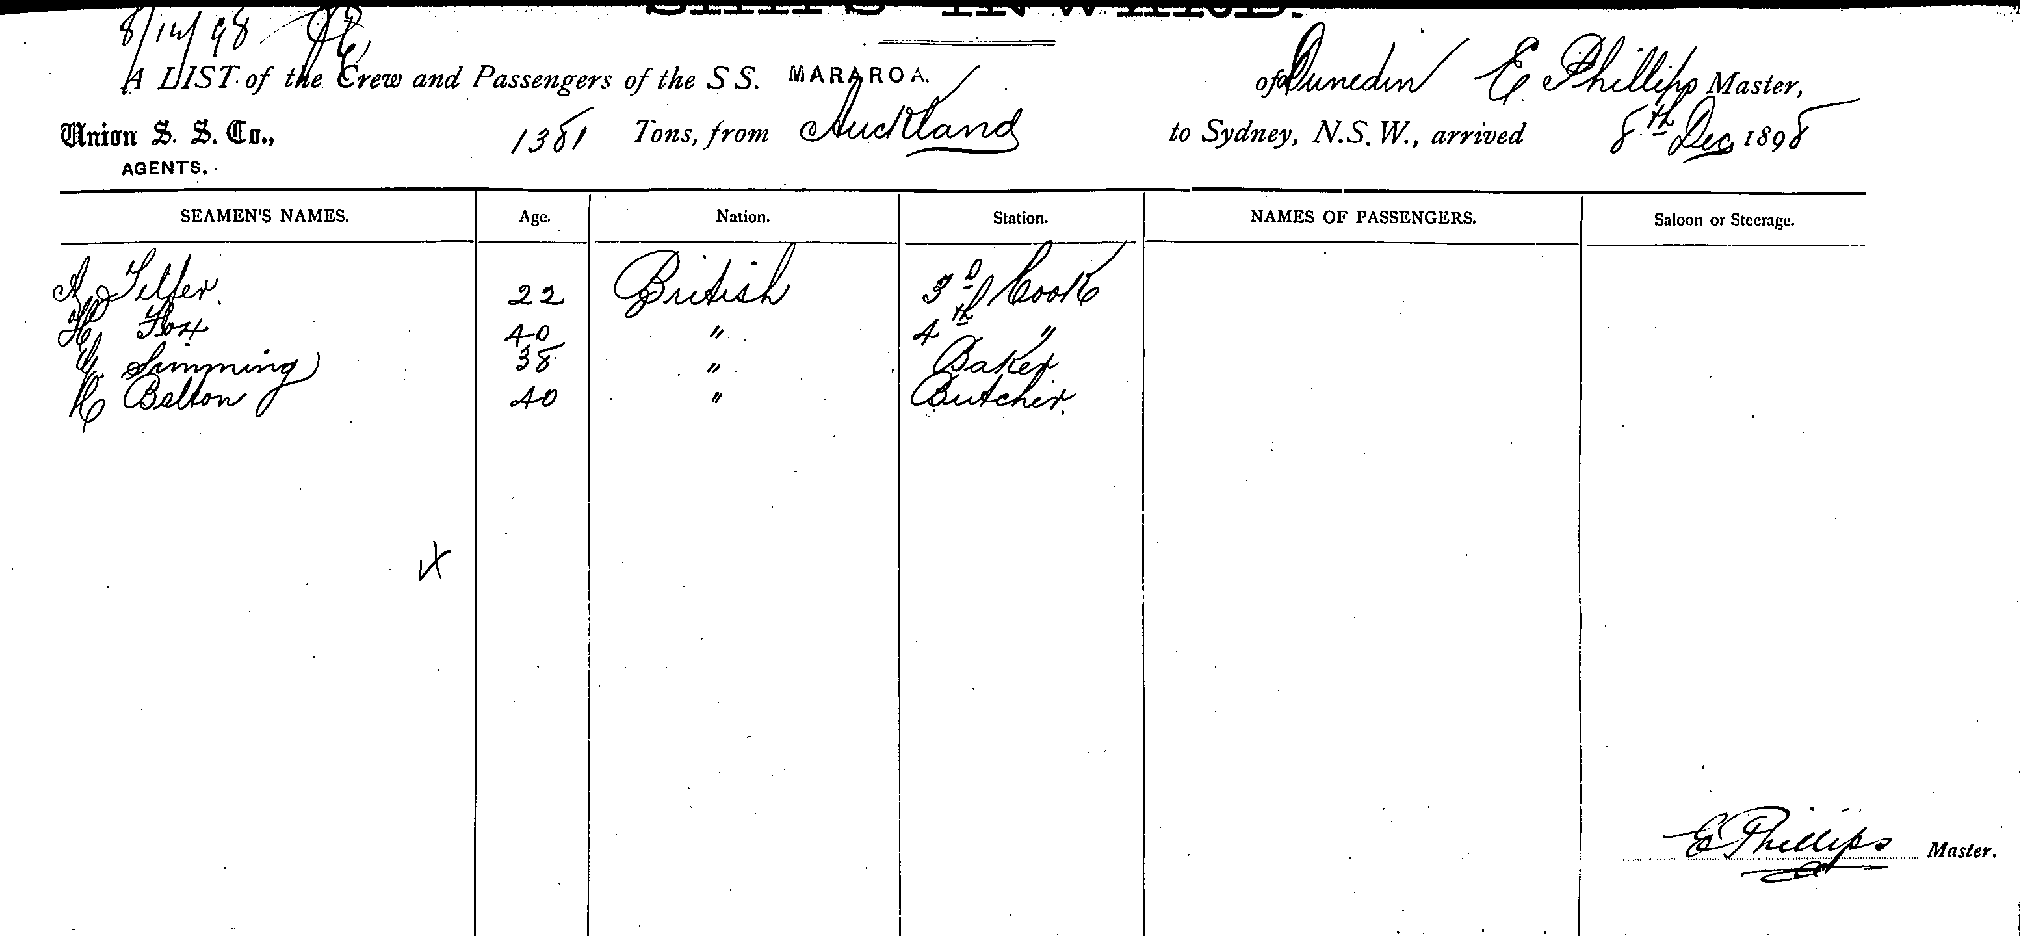 SHIPS INWARD.
8/12/98
A LIST of the Crew and Passengers of the S S. MARAROA. of Dunedin E. Phillips Master,
Union S. S. Co., 1381 Tons, from Auckland to Sydney, N.S.W., arrived 8th Dec 1898
AGENTS.
SEAMEN'S NAMES. Age. Nation. Station. NAMES OF PASSENGERS. Saloon or Steerage.
A Telfer. 22 British 3d Cook
H Fox 40 " 4th "
G Simming 38 " Baker
H Belton 40 " Butcher
X
E Phillips Master.